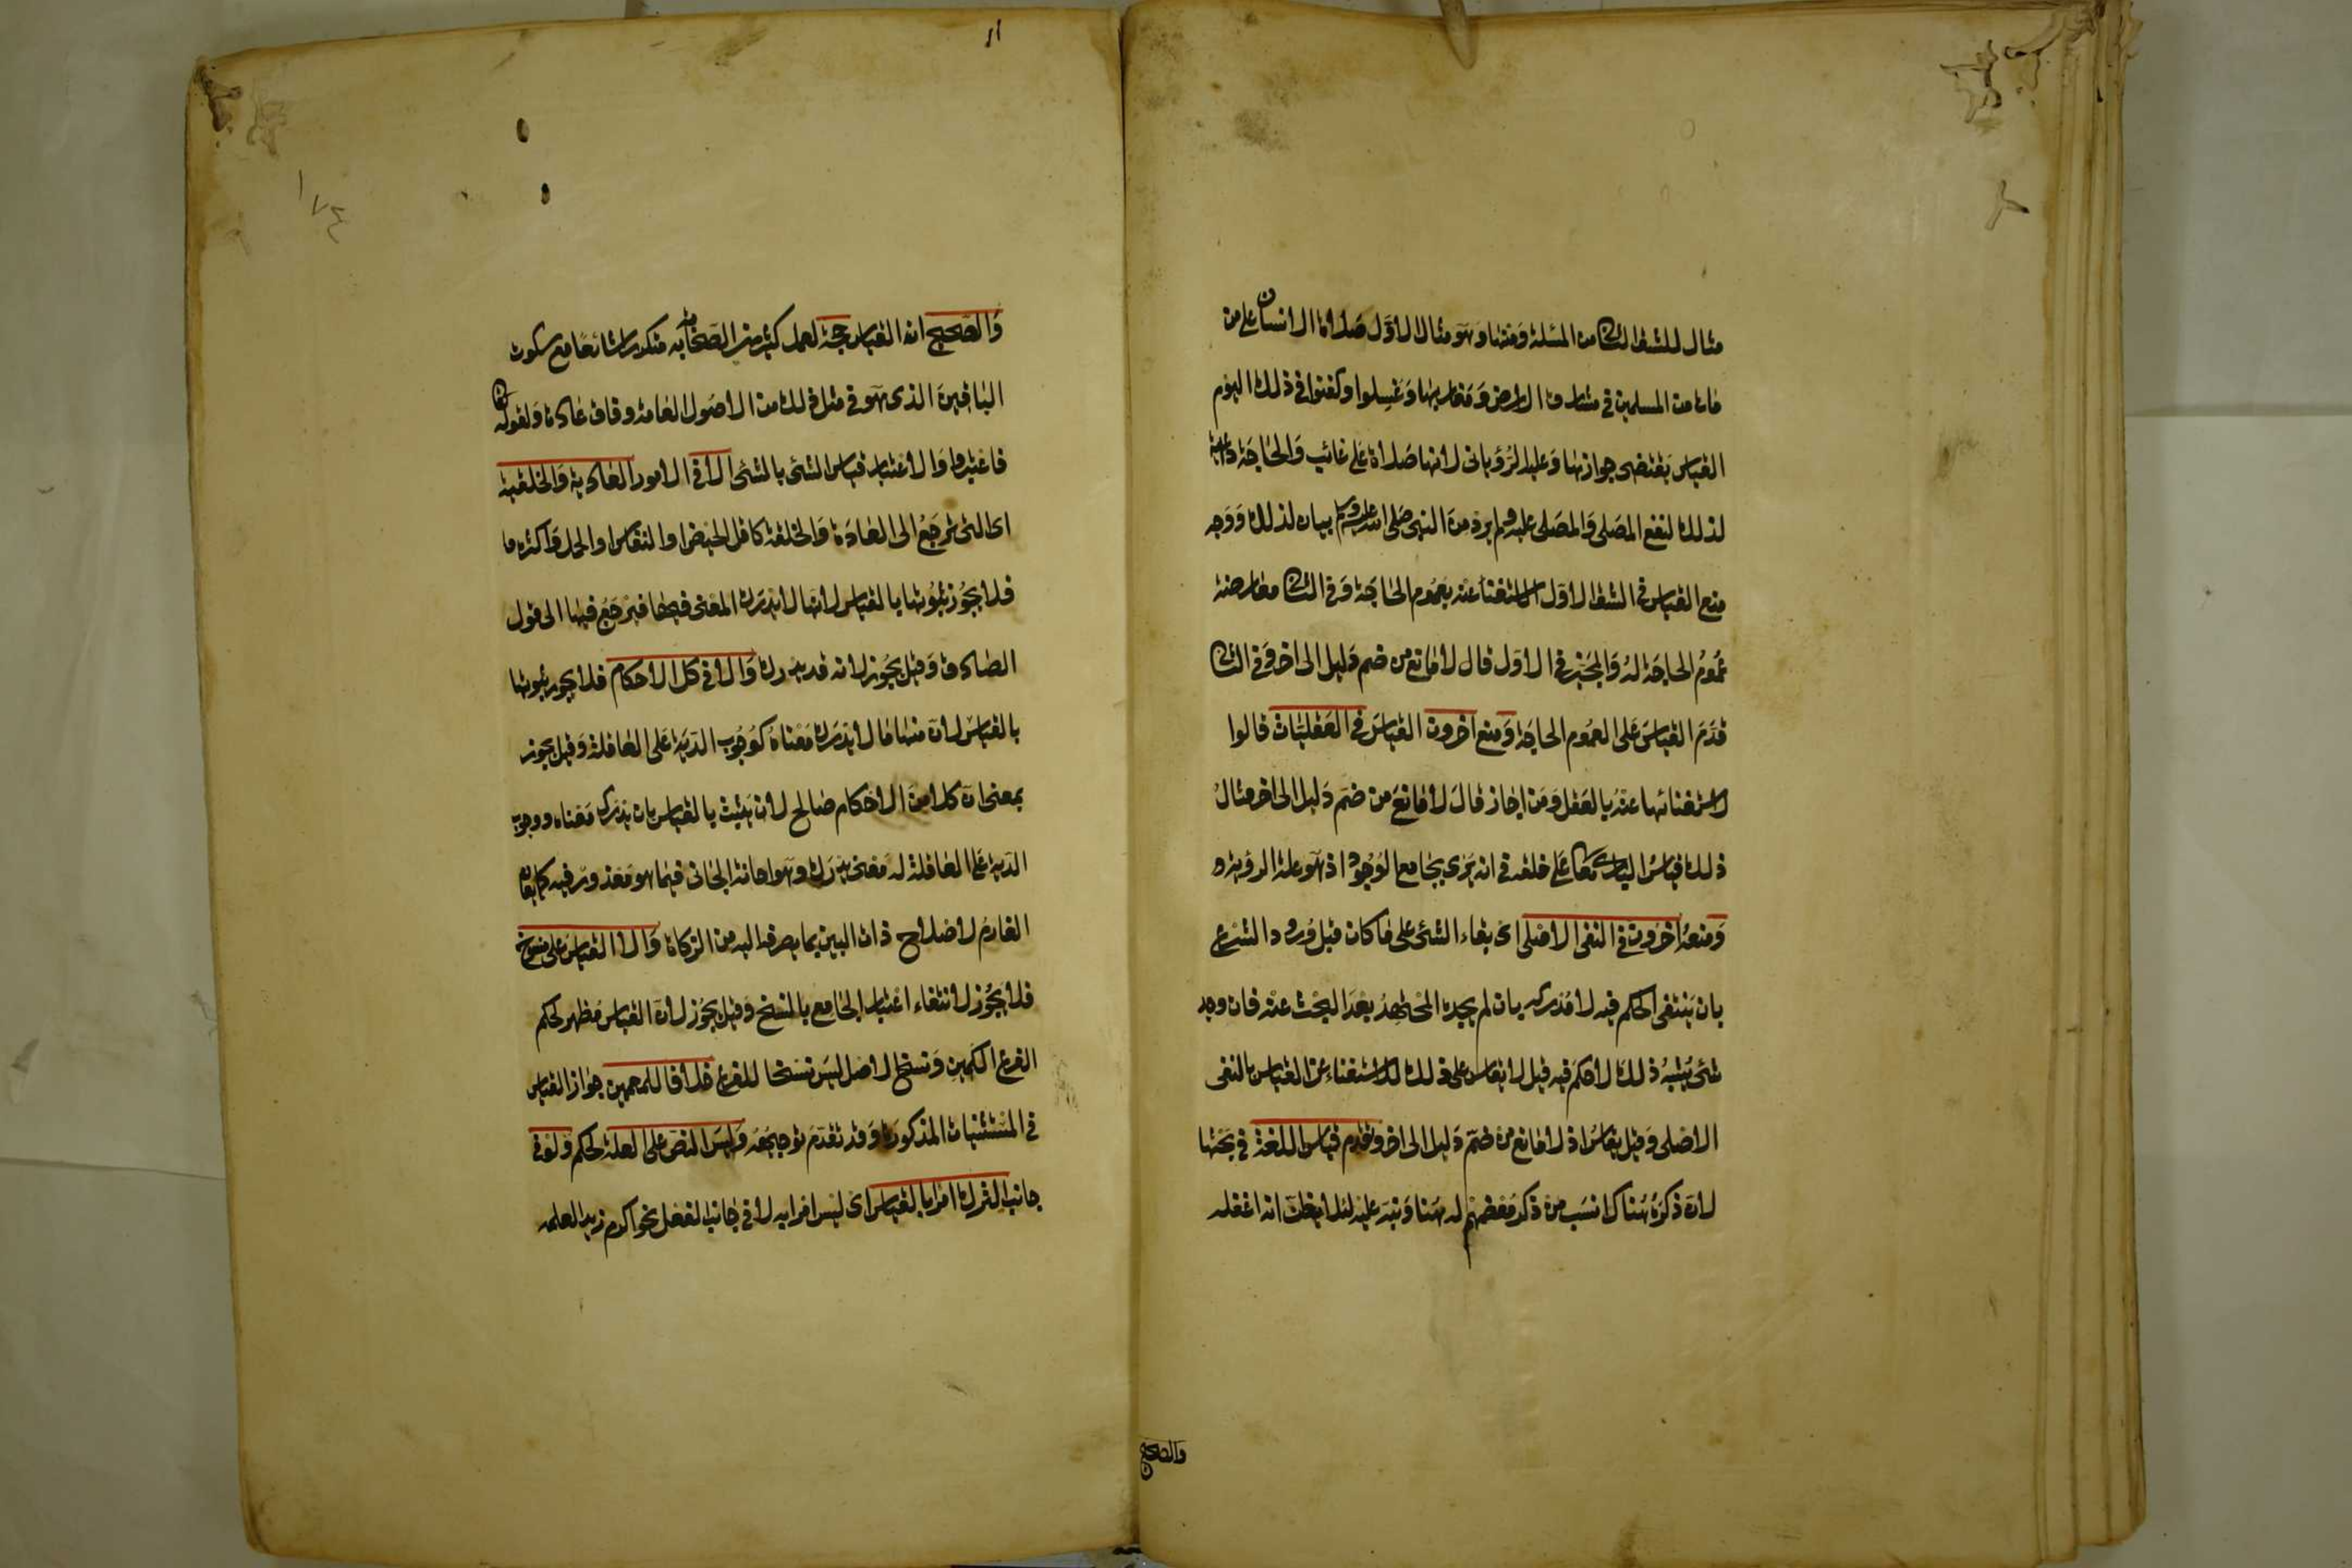 مثال للشق الثانى من المسئلة ومنها وهو مثال الاول صلاة الانسان على من
مات من المسلمين فى مشارق الارض ومغاربها وغسلوا وكفنوا فى ذلك اليوم
القياس يقتضى جوازها وعليه الرؤيانى لانها صلاة على غائب والحاجة داعية
لذلك لنفع المصلى والمصلى عليه ولم يرد من النبى صلى الله عليه وسلم بيان لذلك ووجه
منع القياس فى الشق الاول الاستغناء عنه بعموم الحاجة وفى الثانى معارضة
عموم الحاجة له والمجيز فى الاول قال لا مانع من ضم دليل الى اخر وفى الثانى
قدم القياس على العموم الحاجة ومنع اخرون القياس فى العقليات قالوا
لاستغنائها عنه بالعقل ومن اجاز قال لا مانع من ضم دليل الى اخر مثال
ذلك قياس البارى تعالى على خلقه فى انه يرى بجامع الوجود اذ هو علة الرؤية
ومنعه اخرون فى النفى الاصلى اى بقاء الشئ على ما كان قبل ورود الشرع
بان ينتفى الحكم فيه لا مدركه بان لم يجده المجتهد بعد البحث عنه فان وجد
شئ يشبه ذلك لا حكم فيه قيل لا يقاس على ذلك للاستغناء عن القياس بالنفى
الاصلى وقيل يقاس اذ لا مانع من ضم دليل الى اخر وتقدم قياس اللغة فى بحثها
لان ذكره هناك انسب من ذكر معظمهم له هنا ونبه عليه لئلا يظن انه اغفله
والصحيح
١١
١٧٤
والصحيح ان القياس حجة لعمل كثير من الصحابة به متكررا شائعا مع سكوت
الباقين الذى هو فى مثل ذلك من الاصول العامة وفاق عادة ولقوله تعالى
فاعتبروا والاعتبار قياس الشئ بالشئ الا فى الامور العادية والخلقية
اى التى ترجع الى العادة والخلقة كاقل الحيض او النفاس او الحمل واكثره
فلا يجوز ثبوتها بالقياس لانها لا يدرك المعنى فيها فيرجع فيها الى قول
الصادق وقيل يجوز لانه قد يدرك والا فى كل الاحكام فلا يجوز ثبوتها
بالقياس لان منها ما لا يدرك معناه كوجوب الدية على العاقلة وقيل يجوز
بمعنى ان كلا من الاحكام صالح لان يثبت بالقياس بان يدرك معناه ووجوب
الدية على العاقلة له معنى يدرك وهو اعانة الجانى فيما هو معذور فيه كما يعان
الغارم لاصلاح ذات البين بما يصرف اليه من الزكاة والا القياس على منسوخ
فلا يجوز لانتفاء اعتبار الجامع بالنسخ وقيل يجوز لان القياس مظهر لحكم
الفرع الكمين ونسخ الاصل ليس نسخا للفرع خلافا للمعممين جواز القياس
فى المستثنيات المذكورة وقد تقدم توجيهه وليس النص على العلة لحكم ولو فى
جانب الترك امرا بالقياس اى ليس امرا به لا فى جانب الفعل نحو اكرم زيدا لعلمه